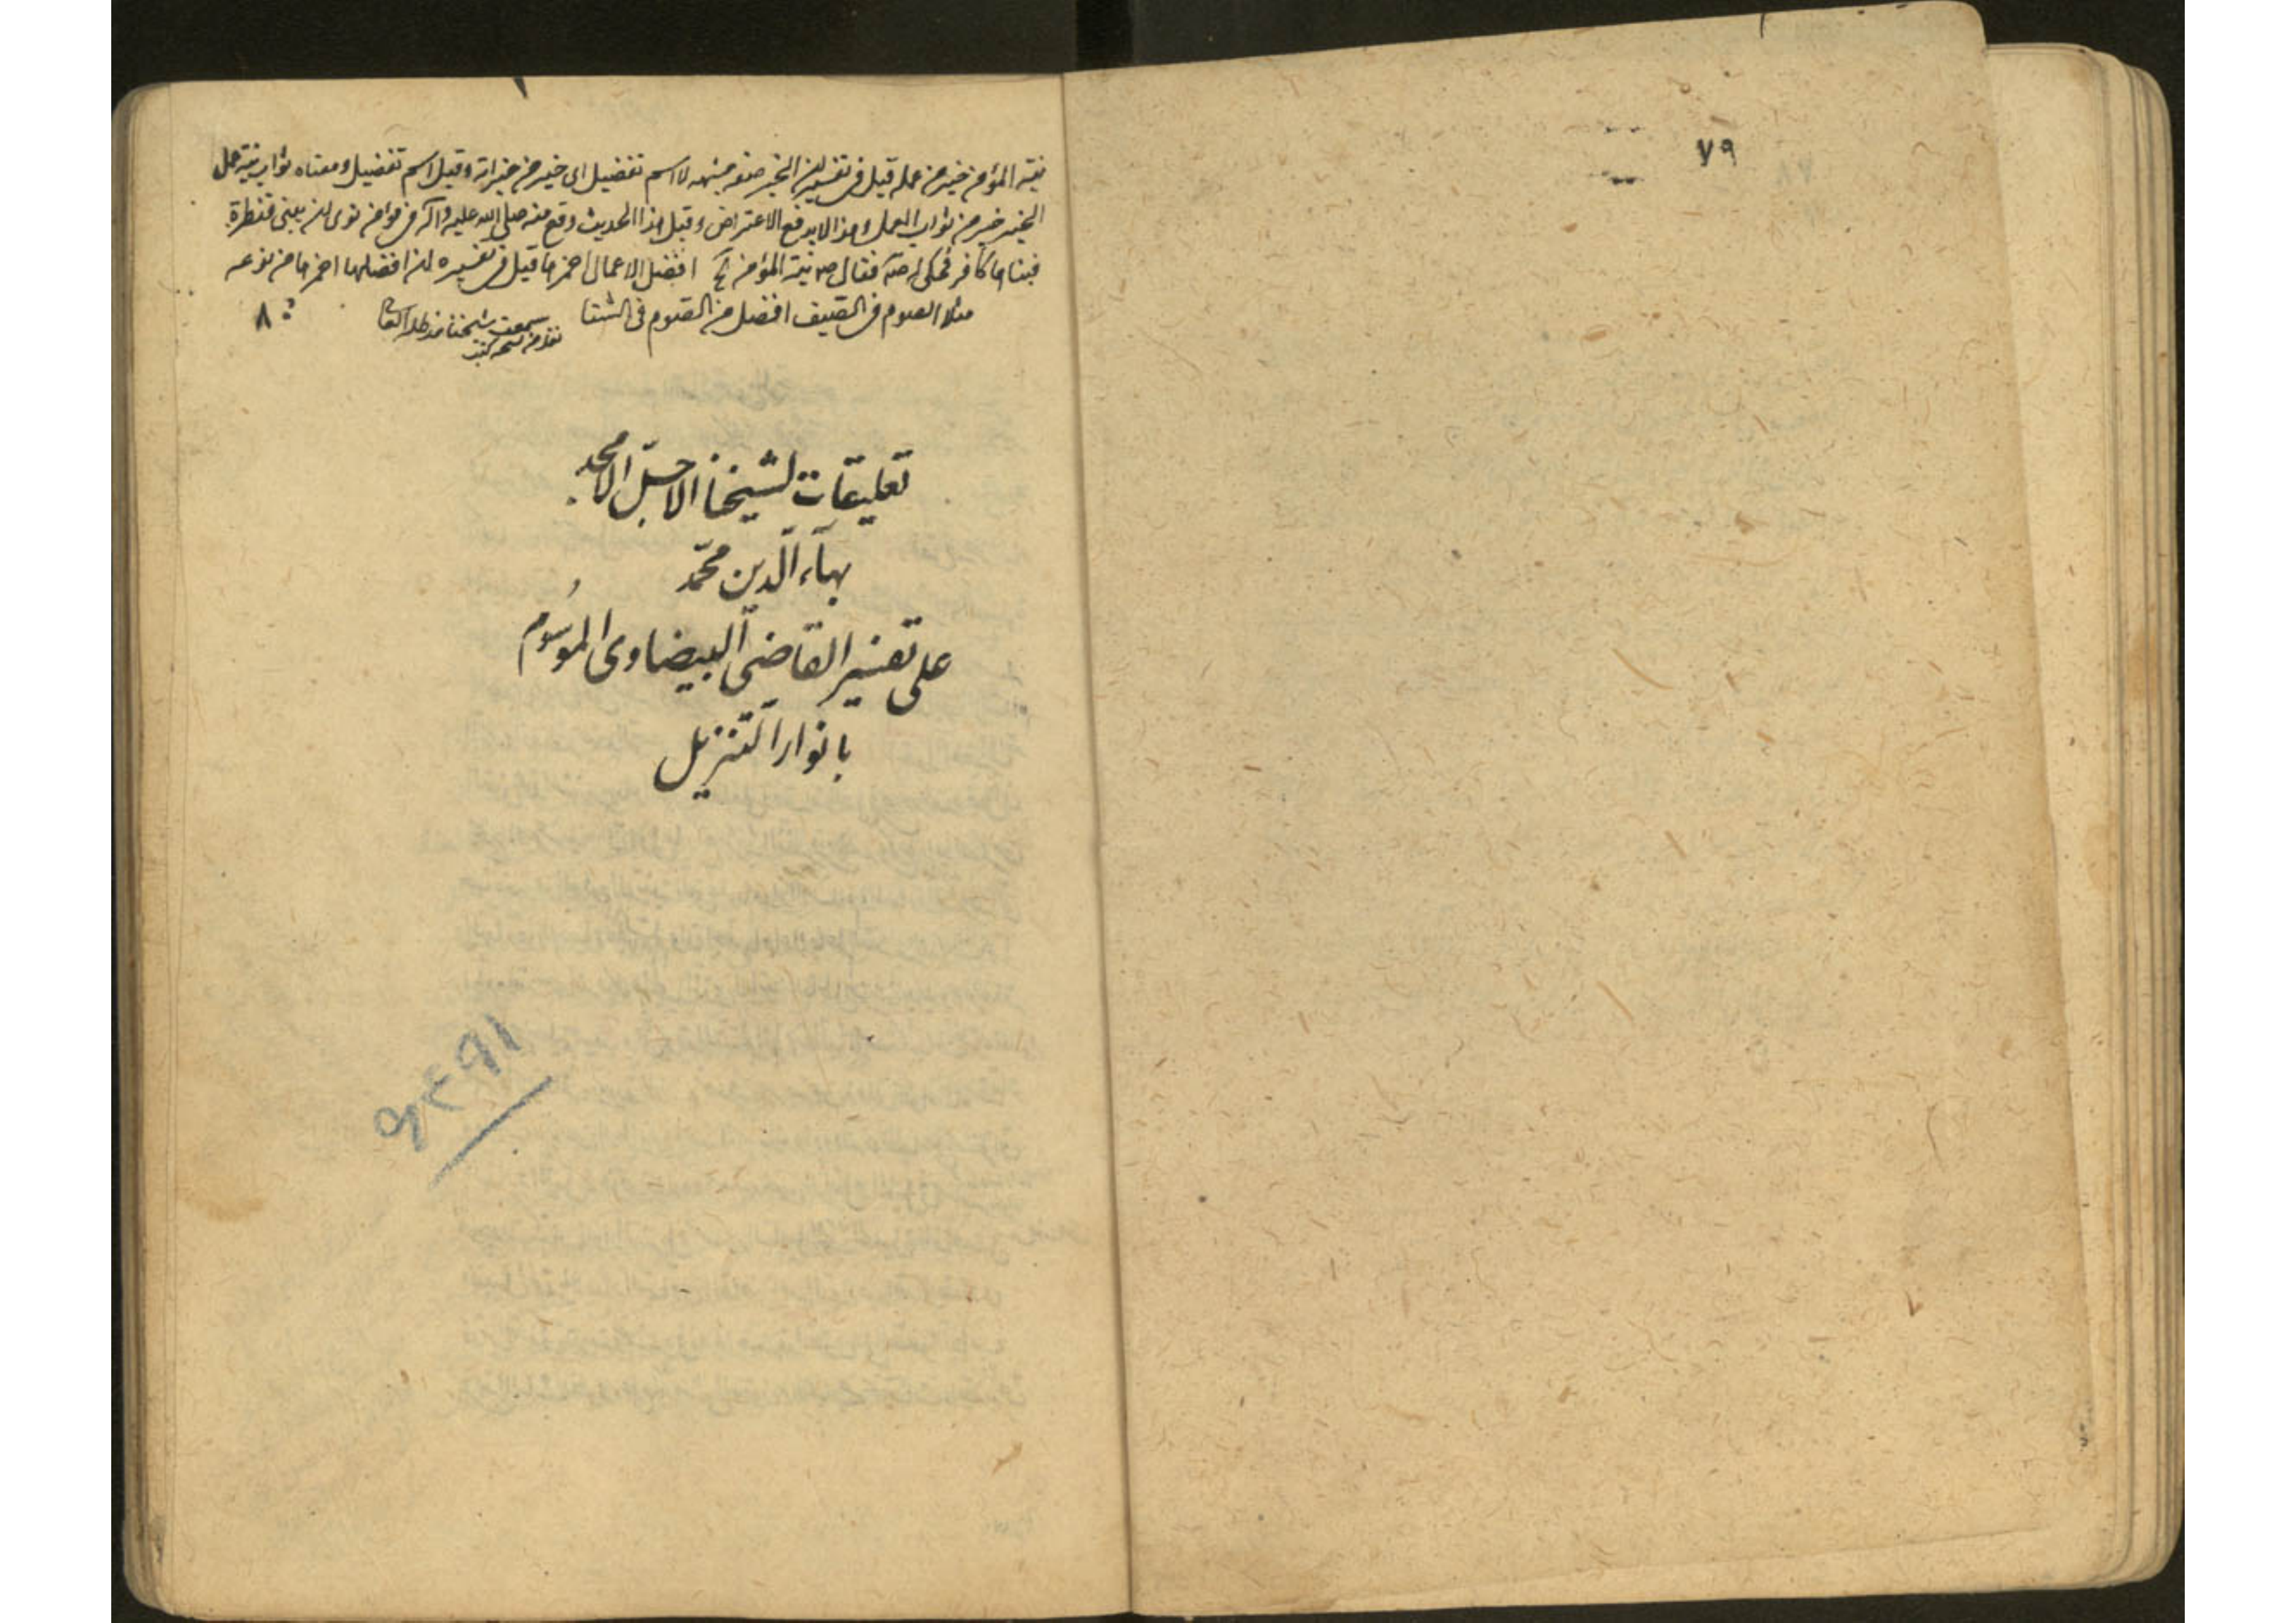 ٧٩
نية المؤمن خير من عمله قيل في تفسيره ان الخير صفة مشبهه لا اسم تفضيل اى خير من خيراته وقيل اسم تفضيل ومعناه ثواب نية عمل
الخير خير من ثواب العمل وهذا لا يدفع الاعتراض وقيل هذا الحديث وقع منه صلى الله عليه وآله فى مؤمن نوى ان يبنى قنطرة
فبناها كافر فحكى له ص فقال ص نية المؤمن افضل الاعمال احمزها قيل فى تفسيره ان افضلها احمزها من نوعه
مثلا الصوم فى الصيف افضل من الصوم فى الشتا سمعت شيخنا مد ظله
٨
تعليقات لشيخنا الاجل الامجد
بهآء الدين محمد
على تفسير القاضى البيضاوى الموسوم
بانوار التنزيل